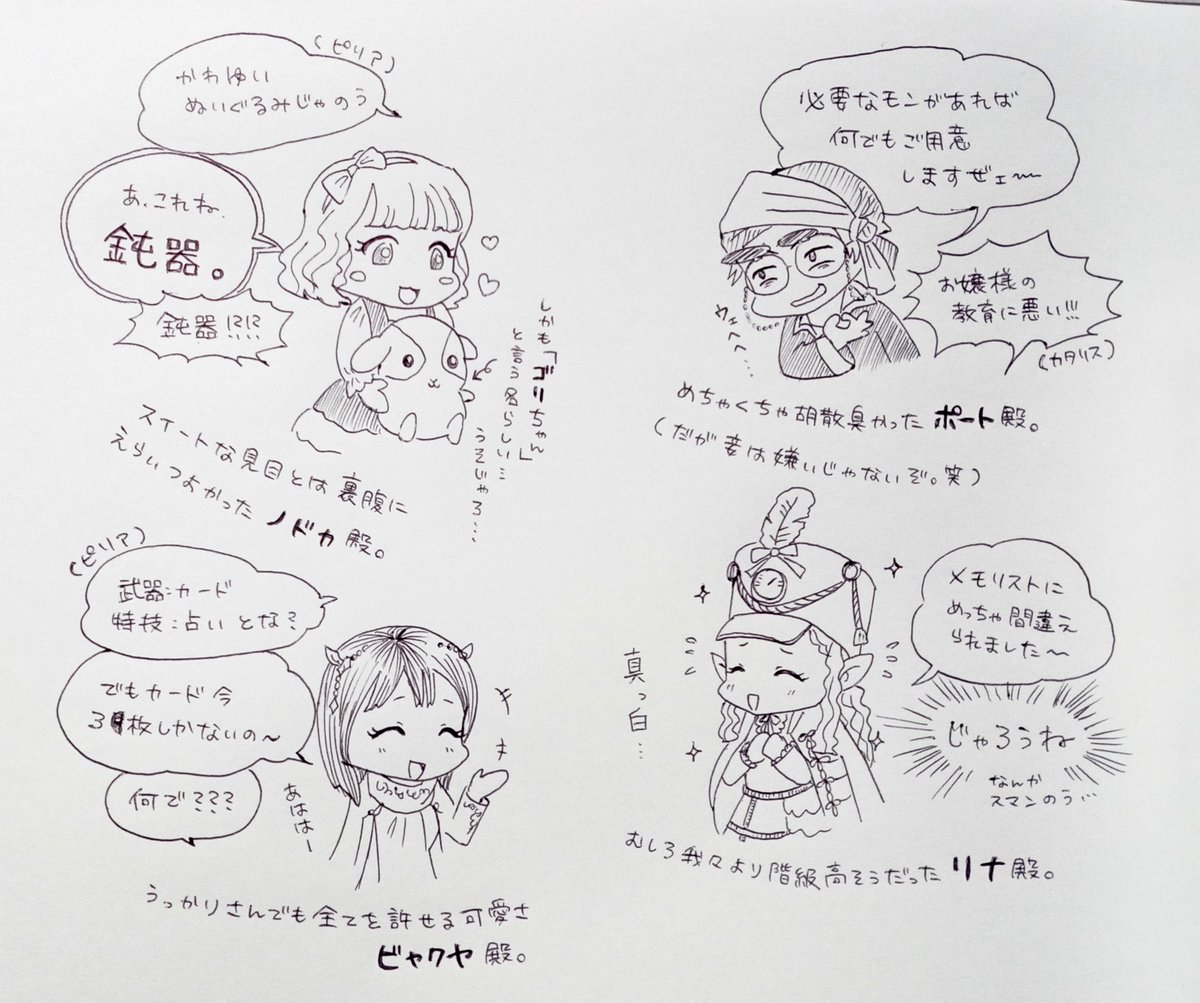 (ピリア)
かわゆい
ぬいぐるみじゃのう
あ、これね、
鈍器。
鈍器!?!?
しかも「ゴリちゃん」
と言う名らしい…
うそじゃろ…
スイートな見目とは裏腹に
えらいつよかった ノドカ殿。
必要なモンがあれば
何でもご用意
しますぜェ〜
お嬢様の
教育に悪い!!!
(カタリス)
ウェヘヘ…
めちゃくちゃ胡散臭かった ポート殿。
(だが妾は嫌いじゃないぞ。笑)
(ピリア)
武器:カード
特技:占い とな?
でもカード今
3枚しかないの〜
何で???
あははー
うっかりさんでも全てを許せる可愛さ
ビャクヤ殿。
メモリストに
めっちゃ間違え
られました〜
じゃろうね
なんか
スマンのう…
真っ白…
むしろ我々より階級高そうだった リナ殿。